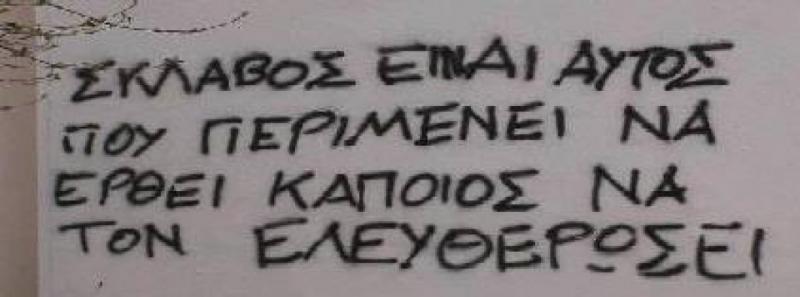 ΣΚΛΑΒΟΣ ΕΙΝΑΙ ΑΥΤΟΣ
ΠΟΥ ΠΕΡΙΜΕΝΕΙ ΝΑ
ΕΡΘΕΙ ΚΑΠΟΙΟΣ ΝΑ
ΤΟΝ ΕΛΕΥΘΕΡΩΣΕΙ